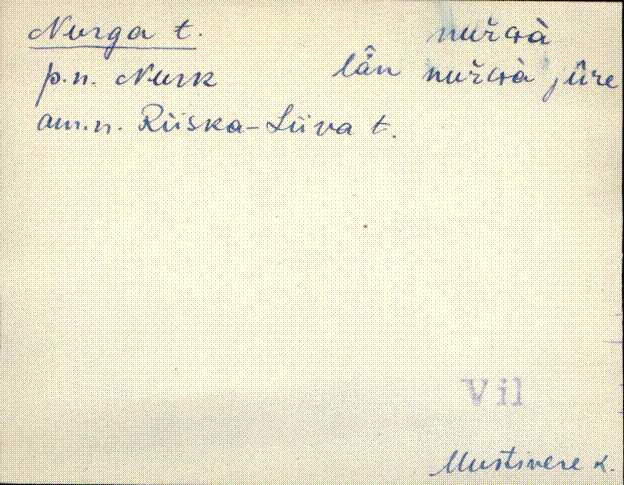 Nurga t. nuřGà
p.n. Nurk lǟn nuřGà jūre
am.n. Riiska-Liiva t.
Vil
Mustivere k.